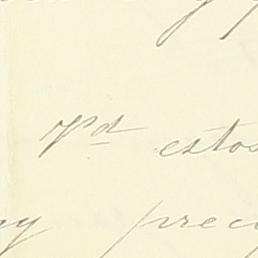 y
Vd estos
ay preci